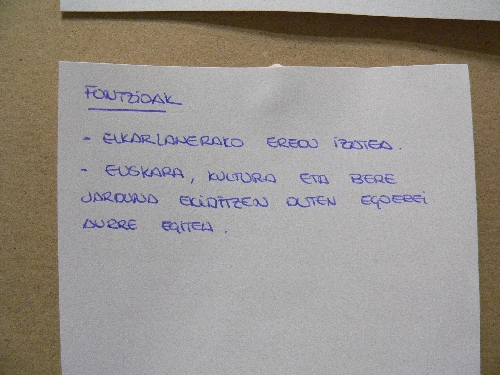 FONTZIOAK
- ELKARLANERAKO EREDU IZATEA.
- EUSKARA, KULTURA ETA BERE
JARDUNA EKIDITZEN DUTEN EGOEREI
AURRE EGITEA.